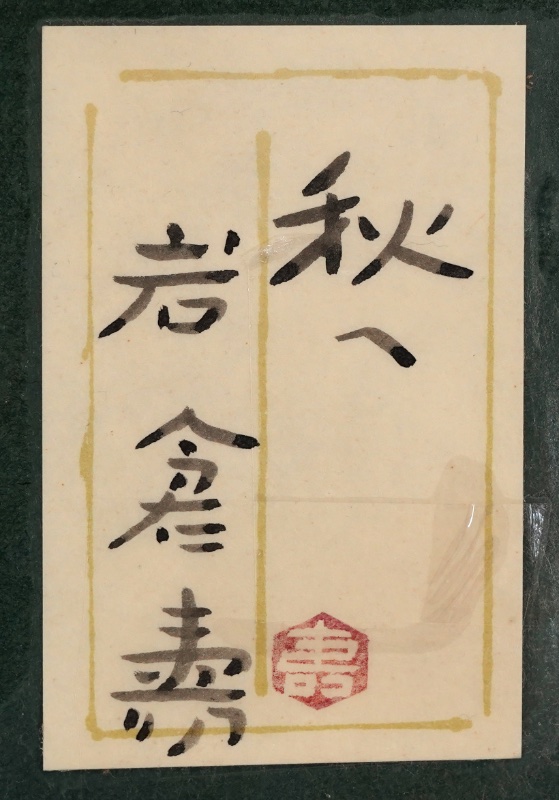 秋へ
岩倉壽
壽